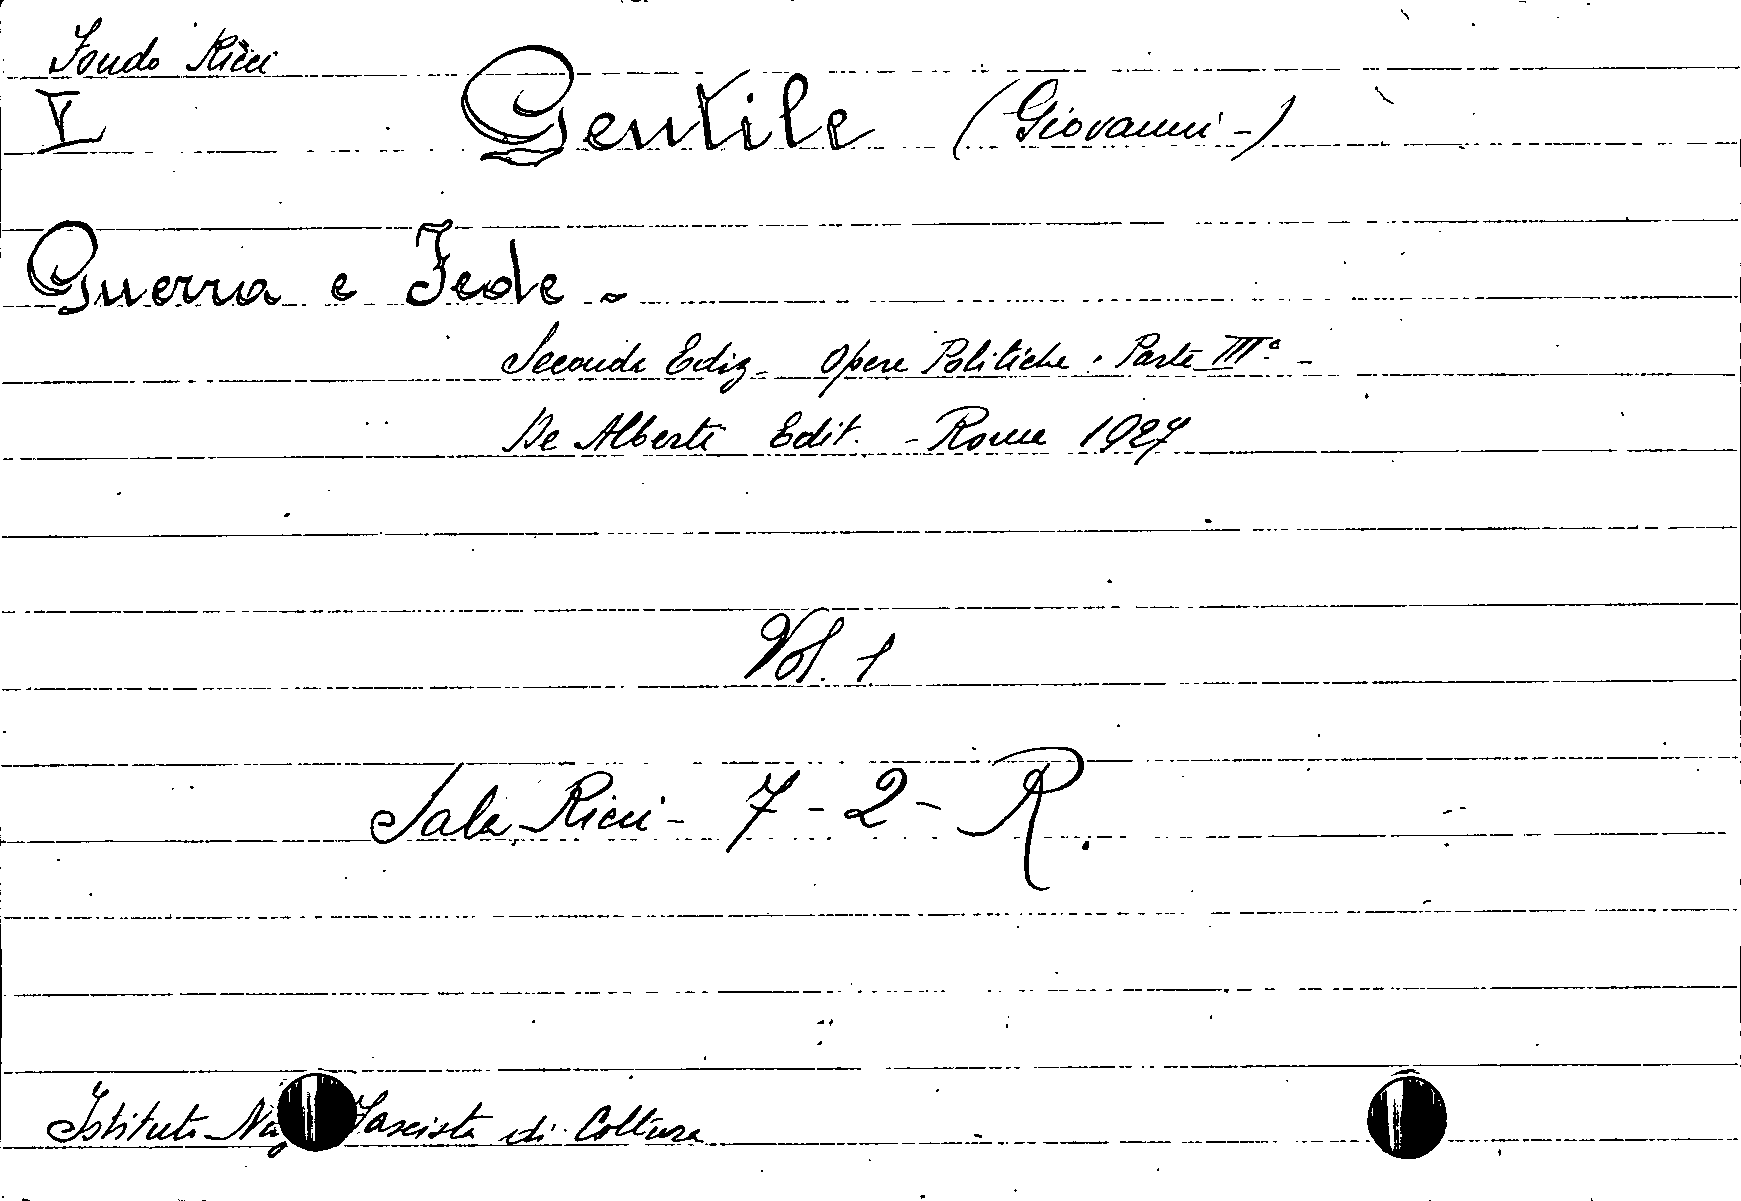 Fondo Ricci
V Gentile (Giovanni -)
Guerra e Fede -
Seconda Ediz - Opere Politiche · Parte IIIª -
De Alberti Edit. - Roma 1927
Vol. 1
Sala Ricci - 7 - 2 - R.
Istituto Naz Fascista di Coltura